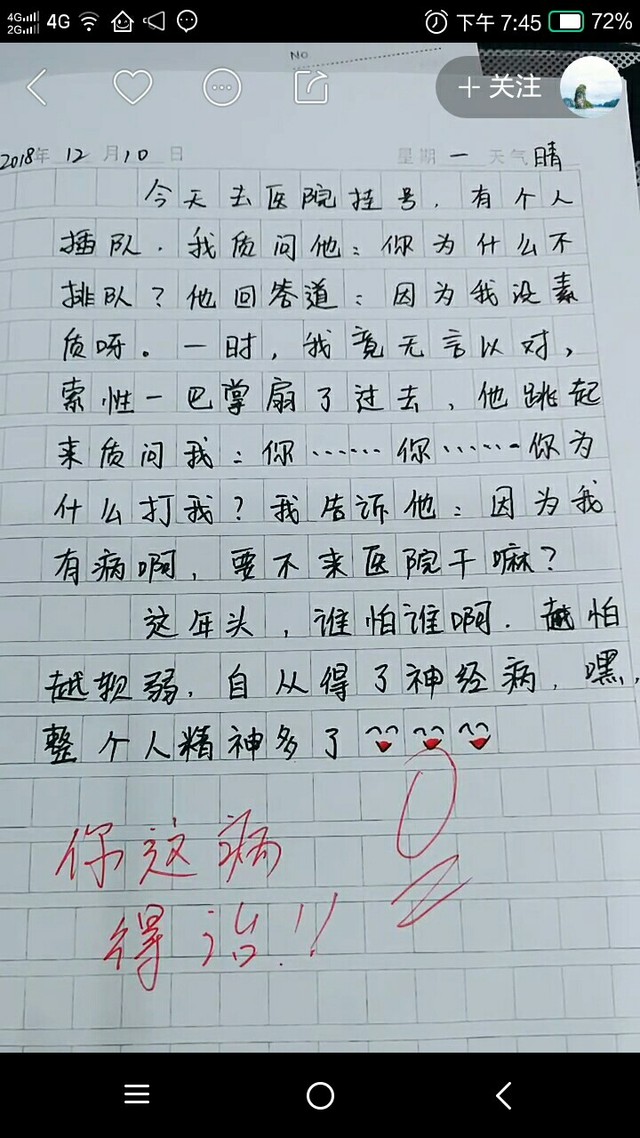 4G 2G 4G 下午 7:45 72%
No
+ 关注
2018年 12月10日 星期一 天气晴
今天去医院挂号，有个人
插队．我质问他：你为什么不
排队？他回答道：因为我没素
质呀。一时，我竟无言以对，
索性一巴掌扇了过去，他跳起
来质问我：你……你……你为
什么打我？我告诉他：因为我
有病啊，要不来医院干嘛？
这年头，谁怕谁啊．越怕
越软弱，自从得了神经病，嘿，
整个人精神多了
0
你这病
得治!!